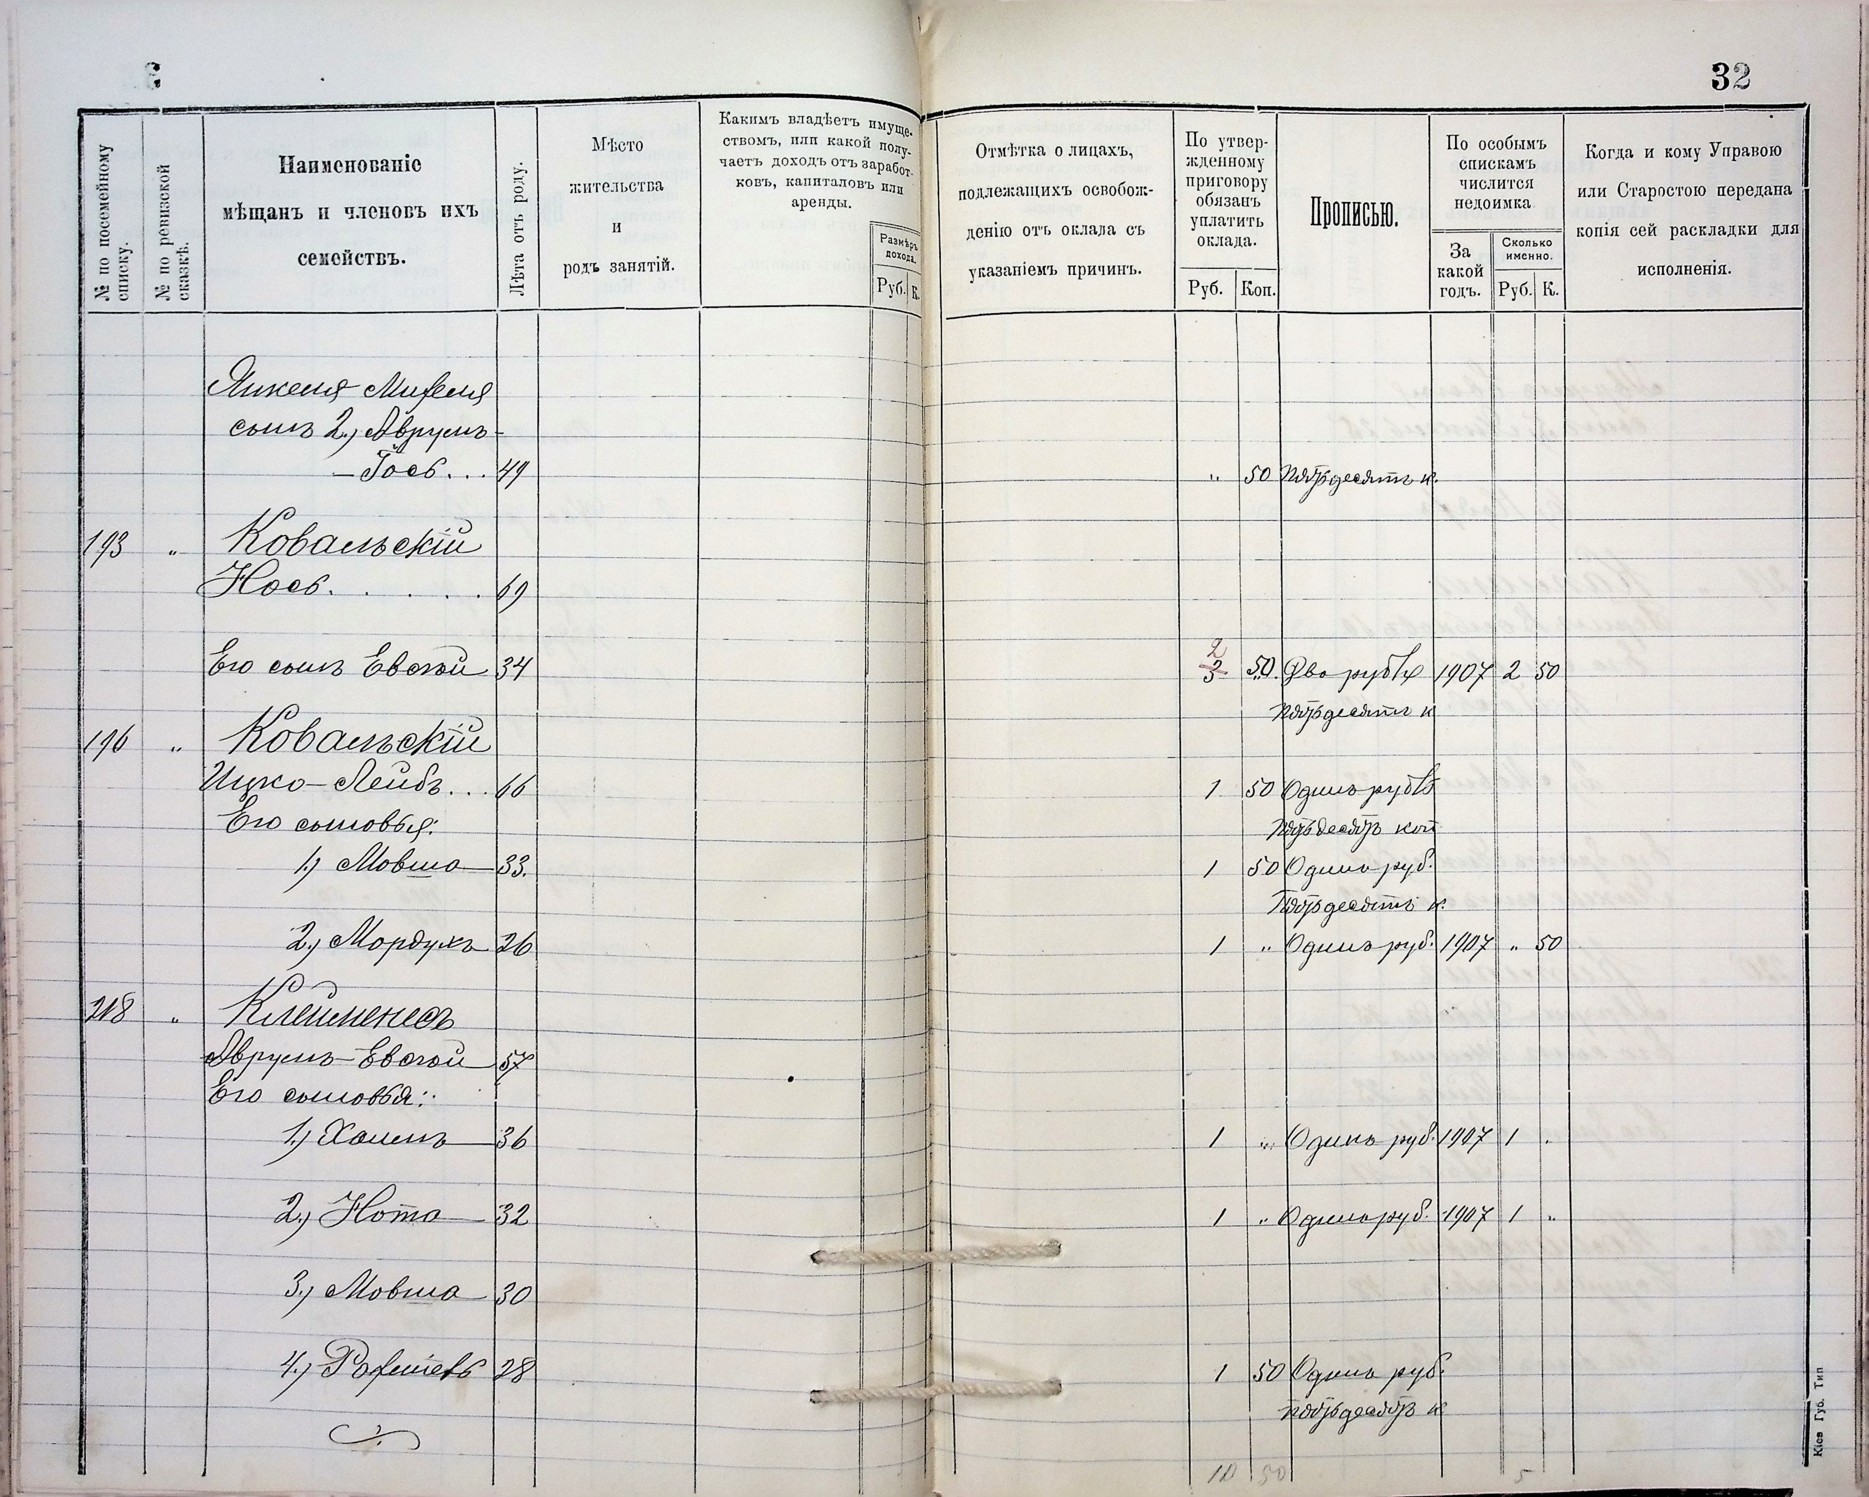 32
№ по посемейному списку.
№ по ревизской сказкѣ.
Наименованіе
мѣщанъ и членовъ ихъ
семействъ.
Лѣта отъ роду.
Мѣсто
жительства
и
родъ занятій.
Какимъ владѣетъ имуще-
ствомъ, или какой полу-
чаетъ доходъ отъ заработ-
ковъ, капиталовъ или
аренды.
Размѣръ
дохода.
Руб. К.
Отмѣтка о лицахъ,
подлежащихъ освобож-
денію отъ оклада съ
указаніемъ причинъ.
По утвер-
жденному
приговору
обязанъ
уплатить
оклада.
Руб. Коп.
Прописью.
По особымъ
спискамъ
числится
недоимка
За
какой
годъ.
Сколько
именно.
Руб. К.
Когда и кому Управою
или Старостою передана
копія сей раскладки для
исполненія.
Янкеля Михеля
сынъ 2.) Аврумъ-
-Іось... 49 " 50 Пятьдесятъ к.
193 " Ковальскій
Нось. . . . . . 69
Его сынъ Евсей 34 2 3 50 Два рубля 1907 2 50
пятьдесятъ к
196 " Ковальскій
Ицко-Лейбъ... 66 1 50 Одинъ рубль
Его сыновья: пятьдесятъ коп
1.) Мовша 33. 1 50 Одинъ руб.
Пятьдесятъ к.
2.) Мордухъ 26 1 " Одинъ руб. 1907 " 50
218 "
Аврумъ-Евсей 57
Его сыновья:
1.) Хаимъ 36 1 " Одинъ руб. 1907 1 "
2.) Нота 32 1 " Одинъ руб. 1907 1 "
3.) Мовша 30
4.) 28 1 50 Одинъ руб.
пятьдесятъ к
10 50 5
Кіев Губ. Тип